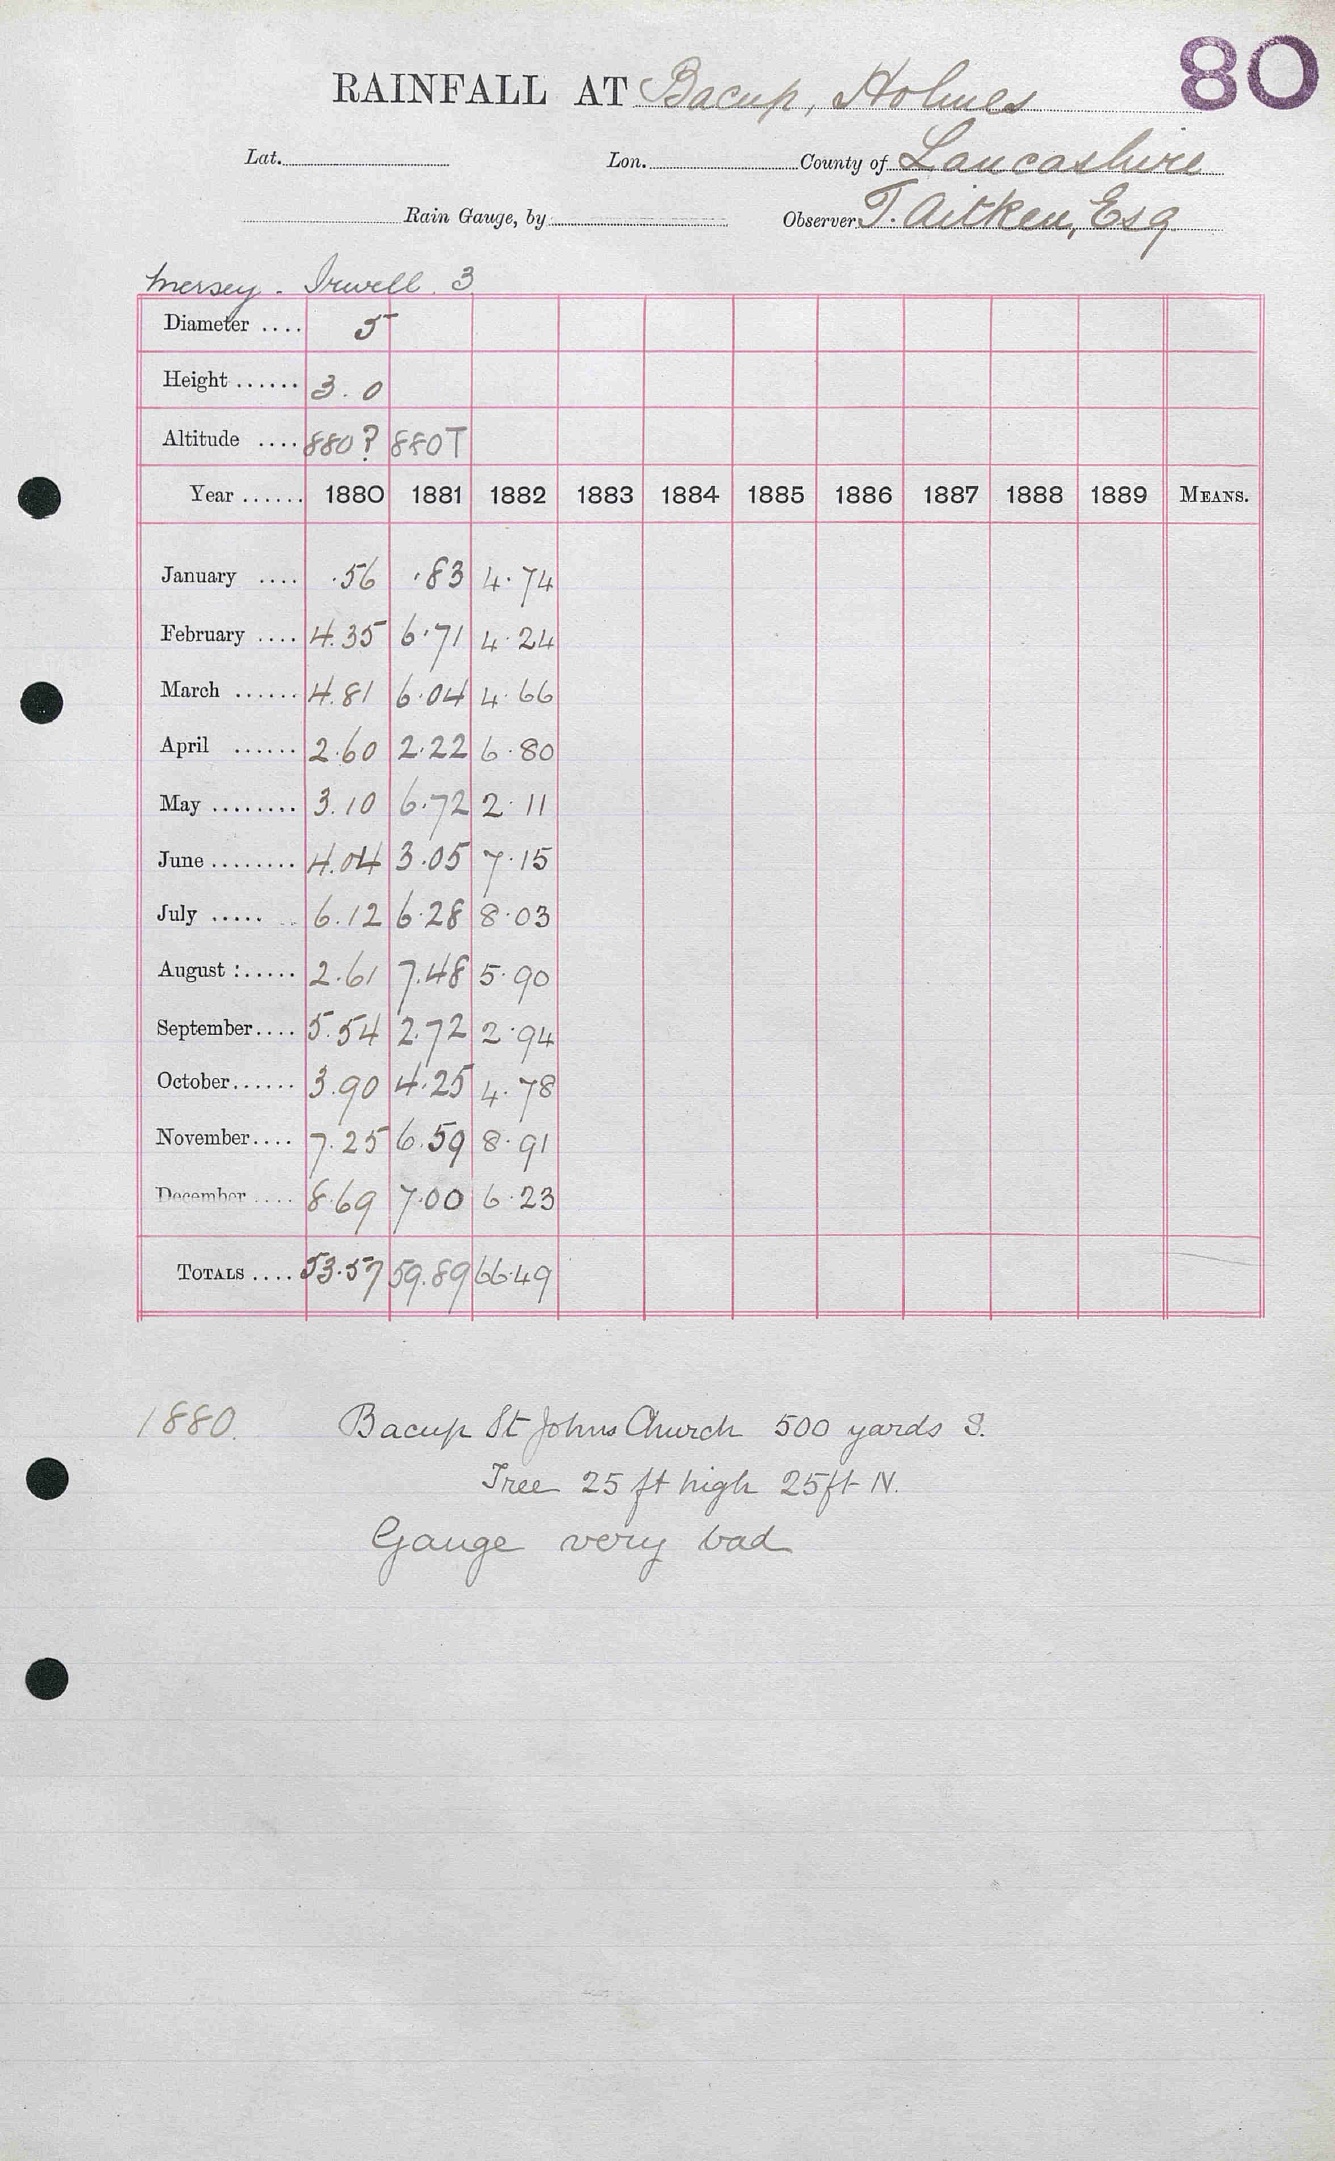 80
RAINFALL AT Bacup, Holmes
Lat. Lon. County of Lancashire
Rain Gauge, by Observer T. Aitken, Esq
Mersey - Irwell. 3
Diameter .... 5
Height ...... 3. 0
Altitude .... 880? 880T
Year ...... 1880 1881 1882 1883 1884 1885 1886 1887 1888 1889 MEANS.
January .... .56 .83 4.74
February .... 4.35 6.71 4.24
March ...... 4.81 6.04 4.66
April ...... 2.60 2.22 6.80
May ........ 3.10 6.72 2.11
June ........ 4.04 3.05 7.15
July ..... 6.12 6.28 8.03
August :..... 2.61 7.48 5.90
September.... 5.54 2.72 2.94
October...... 3.90 4.25 4.78
November.... 7.25 6.59 8.91
December .... 8.69 7.00 6.23
TOTALS .... 53.57 59.89 66.49
1880. Bacup St Johns Church 500 yards S.
Tree 25 ft high 25ft N.
Gauge very bad